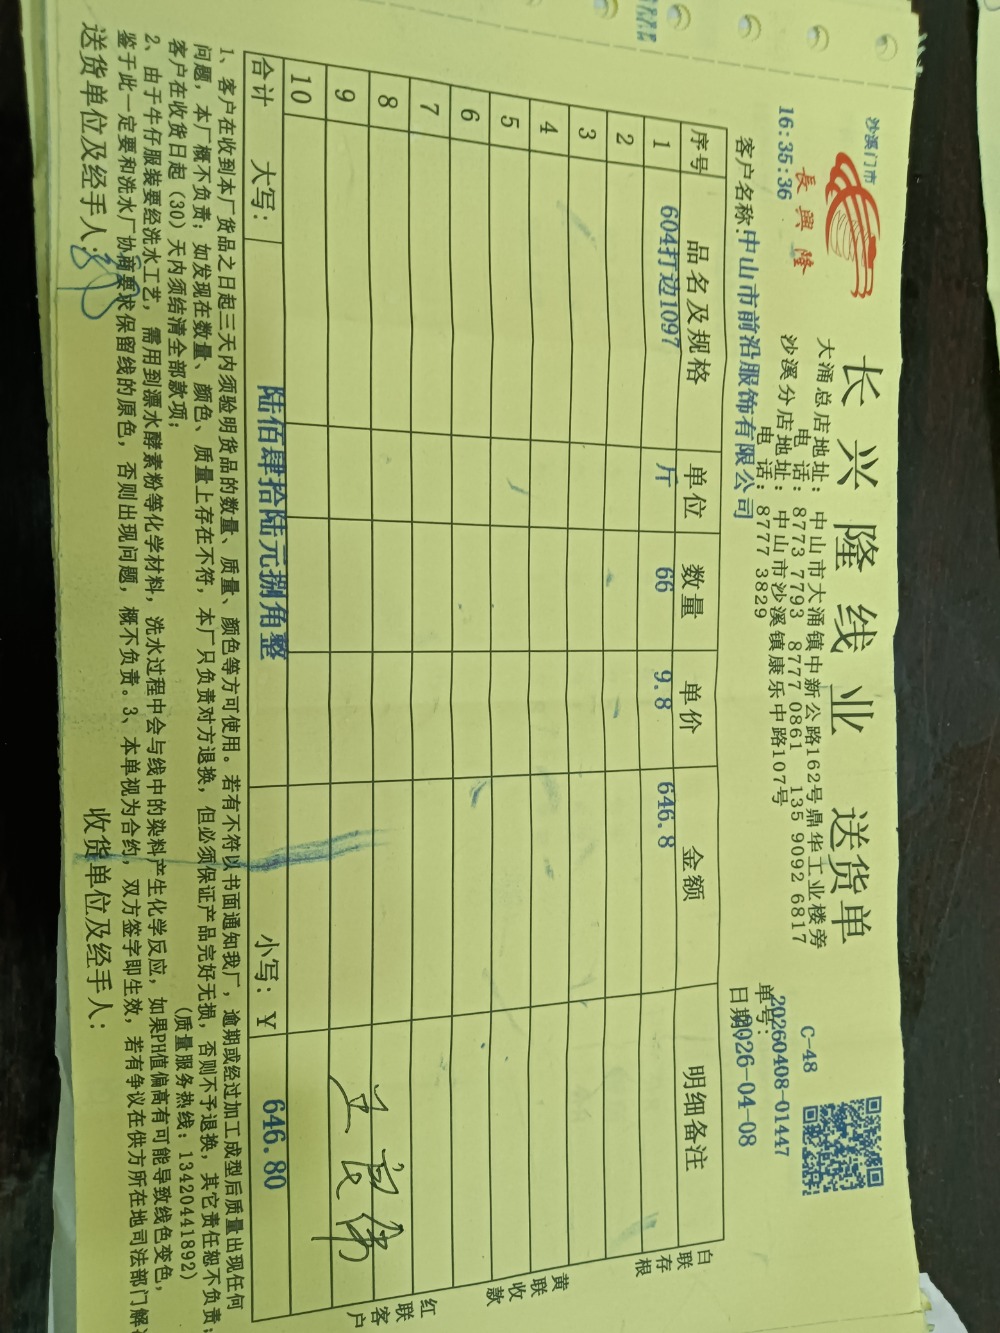 沙溪门市
長興隆
16:35:36
长兴隆线业 送货单
大涌总店地址：中山市大涌镇中新公路162号鼎华工业楼旁
电话：8773 7793 8777 0861 135 9092 6817
沙溪分店地址：中山市沙溪镇康乐中路107号
电话：8777 3829
C-48
单号：20260408-01447
日期：2026-04-08
客户名称：中山市前沿服饰有限公司
序号 品名及规格 单位 数量 单价 金额 明细备注
1 604打边1097 斤 66 9.8 646.8
2
3
4
5
6
7
8
9
10
合计 大写：陆佰肆拾陆元捌角整 小写：¥ 646.80
白联存根
黄联收款
红联客户
1、客户在收到本厂货品之日起三天内须验明货品的数量、质量、颜色等方可使用。若有不符以书面通知我厂，逾期或经过加工成型后质量出现任何
问题，本厂概不负责；如发现在数量、颜色、质量上存在不符，本厂只负责对方退换，但必须保证产品完好无损，否则不予退换，其它责任恕不负责；
客户在收货日起（30）天内须结清全部款项；
（质量服务热线：13420441892）
2、由于牛仔服装要经洗水工艺，需用到漂水酵素粉等化学材料，洗水过程中会与线中的染料产生化学反应，如果PH值偏高有可能导致线色变色，
鉴于此一定要和洗水厂协商要求保留线的原色，否则出现问题，概不负责。3、本单视为合约，双方签字即生效，若有争议在供方所在地司法部门解
送货单位及经手人：
收货单位及经手人：